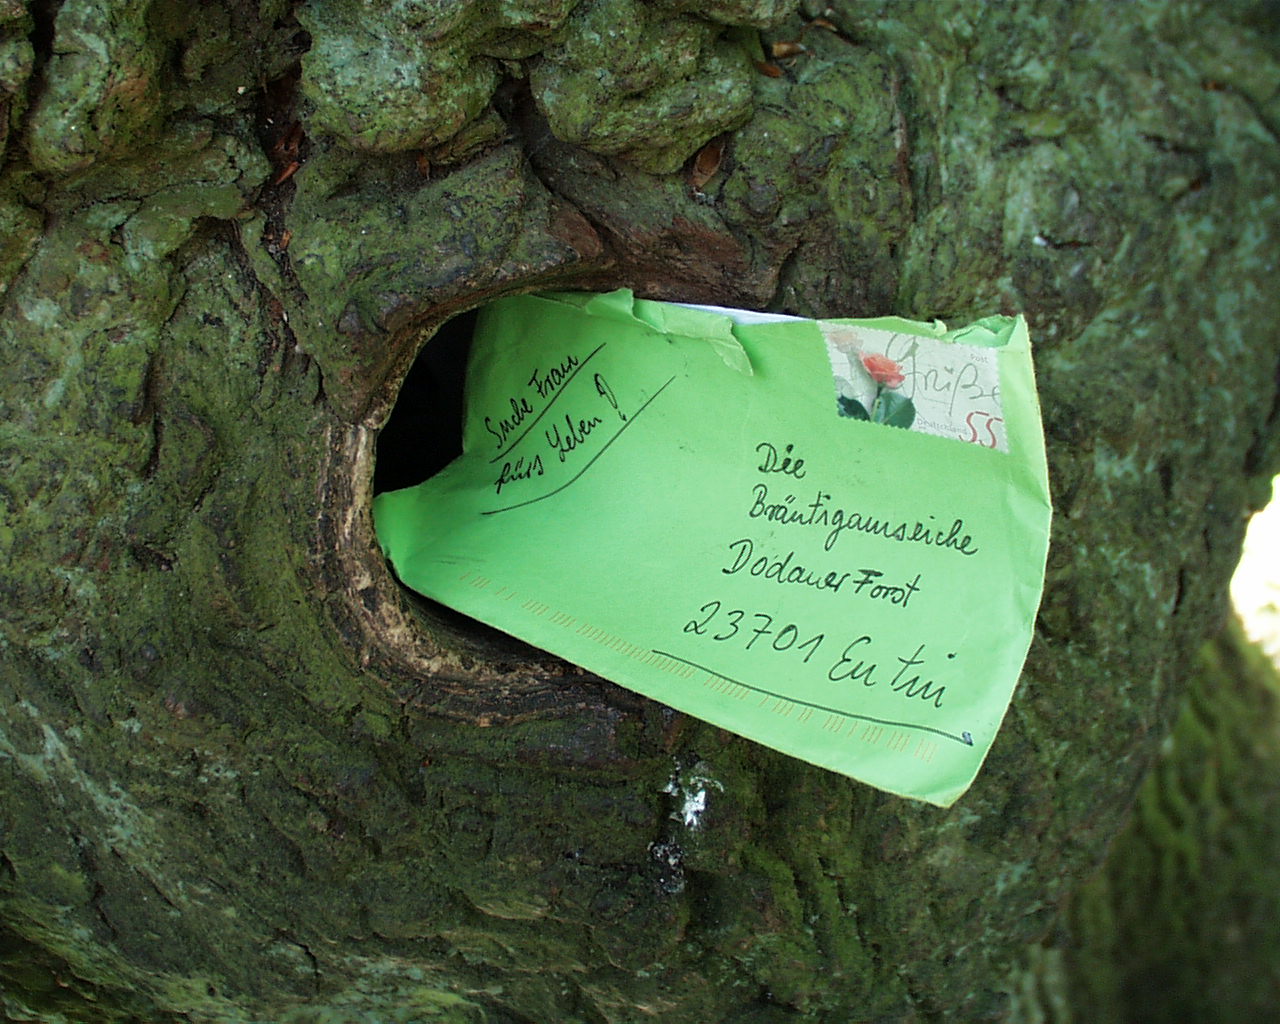 Suche Frau
fürs Leben!
Post
Grüße
Deutschland
55
Die
Bräutigamseiche
Dodauer Forst
23701 Eutin